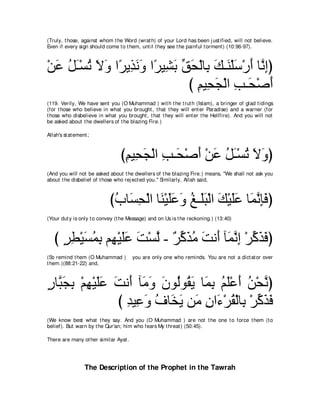 (Truly, those, against whom the Word (wrath) of your Lord has been justified, will not believe.
Even if every sign should come to them, until they see the painful torment) (10:96-97).
﴿إِنَّا أَرْسَلْنَـكَ بِالْحَقِّ بَشِيرًا وَنَذِيرًا وَلاَ تُسْـَلُ عَنْ
أَصْحَـبِ الْجَحِيمِ ﴾
(119. Verily, We have sent you (O Muhammad ) with the truth (Islam), a bringer of glad tidings
(for those who believe in what you brought, that they will enter Paradise) and a warner (for
those who disbelieve in what you brought, that they will enter the Hellfire). And you will not
be asked about the dwellers of the blazing Fire.)
Allah's statement;
﴿وَلاَ تُسْـَلُ عَنْ أَصْحَـبِ الْجَحِيمِ﴾
(And you will not be asked about the dwellers of the blazing Fire.) means, "We shall not ask you
about the disbelief of those who rejected you." Similarly, Allah said,
﴿فَإِنَّمَا عَلَيْكَ الْبَلَـغُ وَعَلَيْنَا الْحِسَابُ﴾
(Your duty is only to convey (the Message) and on Us is the reckoning.) (13:40)
﴿فَذَكِّرْ إِنَّمَآ أَنتَ مُذَكِّرٌ - لَّسْتَ عَلَيْهِم بِمُسَيْطِرٍ ﴾
(So remind them (O Muhammad ) you are only one who reminds. You are not a dictator over
them.)(88:21-22) and,
﴿نَّحْنُ أَعْلَمُ بِمَا يَقُولُونَ وَمَآ أَنتَ عَلَيْهِمْ بِجَبَّارٍ
فَذَكِّرْ بِالْقُرْءَانِ مَن يَخَافُ وَعِيدِ ﴾
(We know best what they say. And you (O Muhammad ) are not the one to force them (to
belief). But warn by the Qur'an; him who fears My threat) (50:45).
There are many other similar Ayat.
The Description of the Prophet in the Tawrah